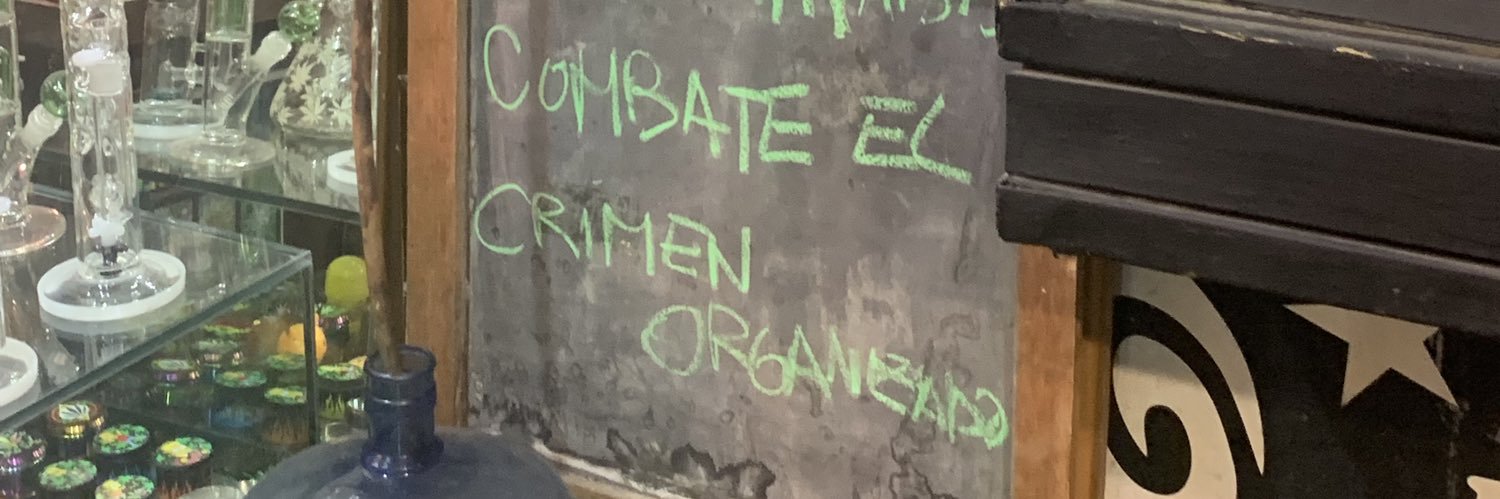 COMBATE EL
CRIMEN
ORGANIZADO